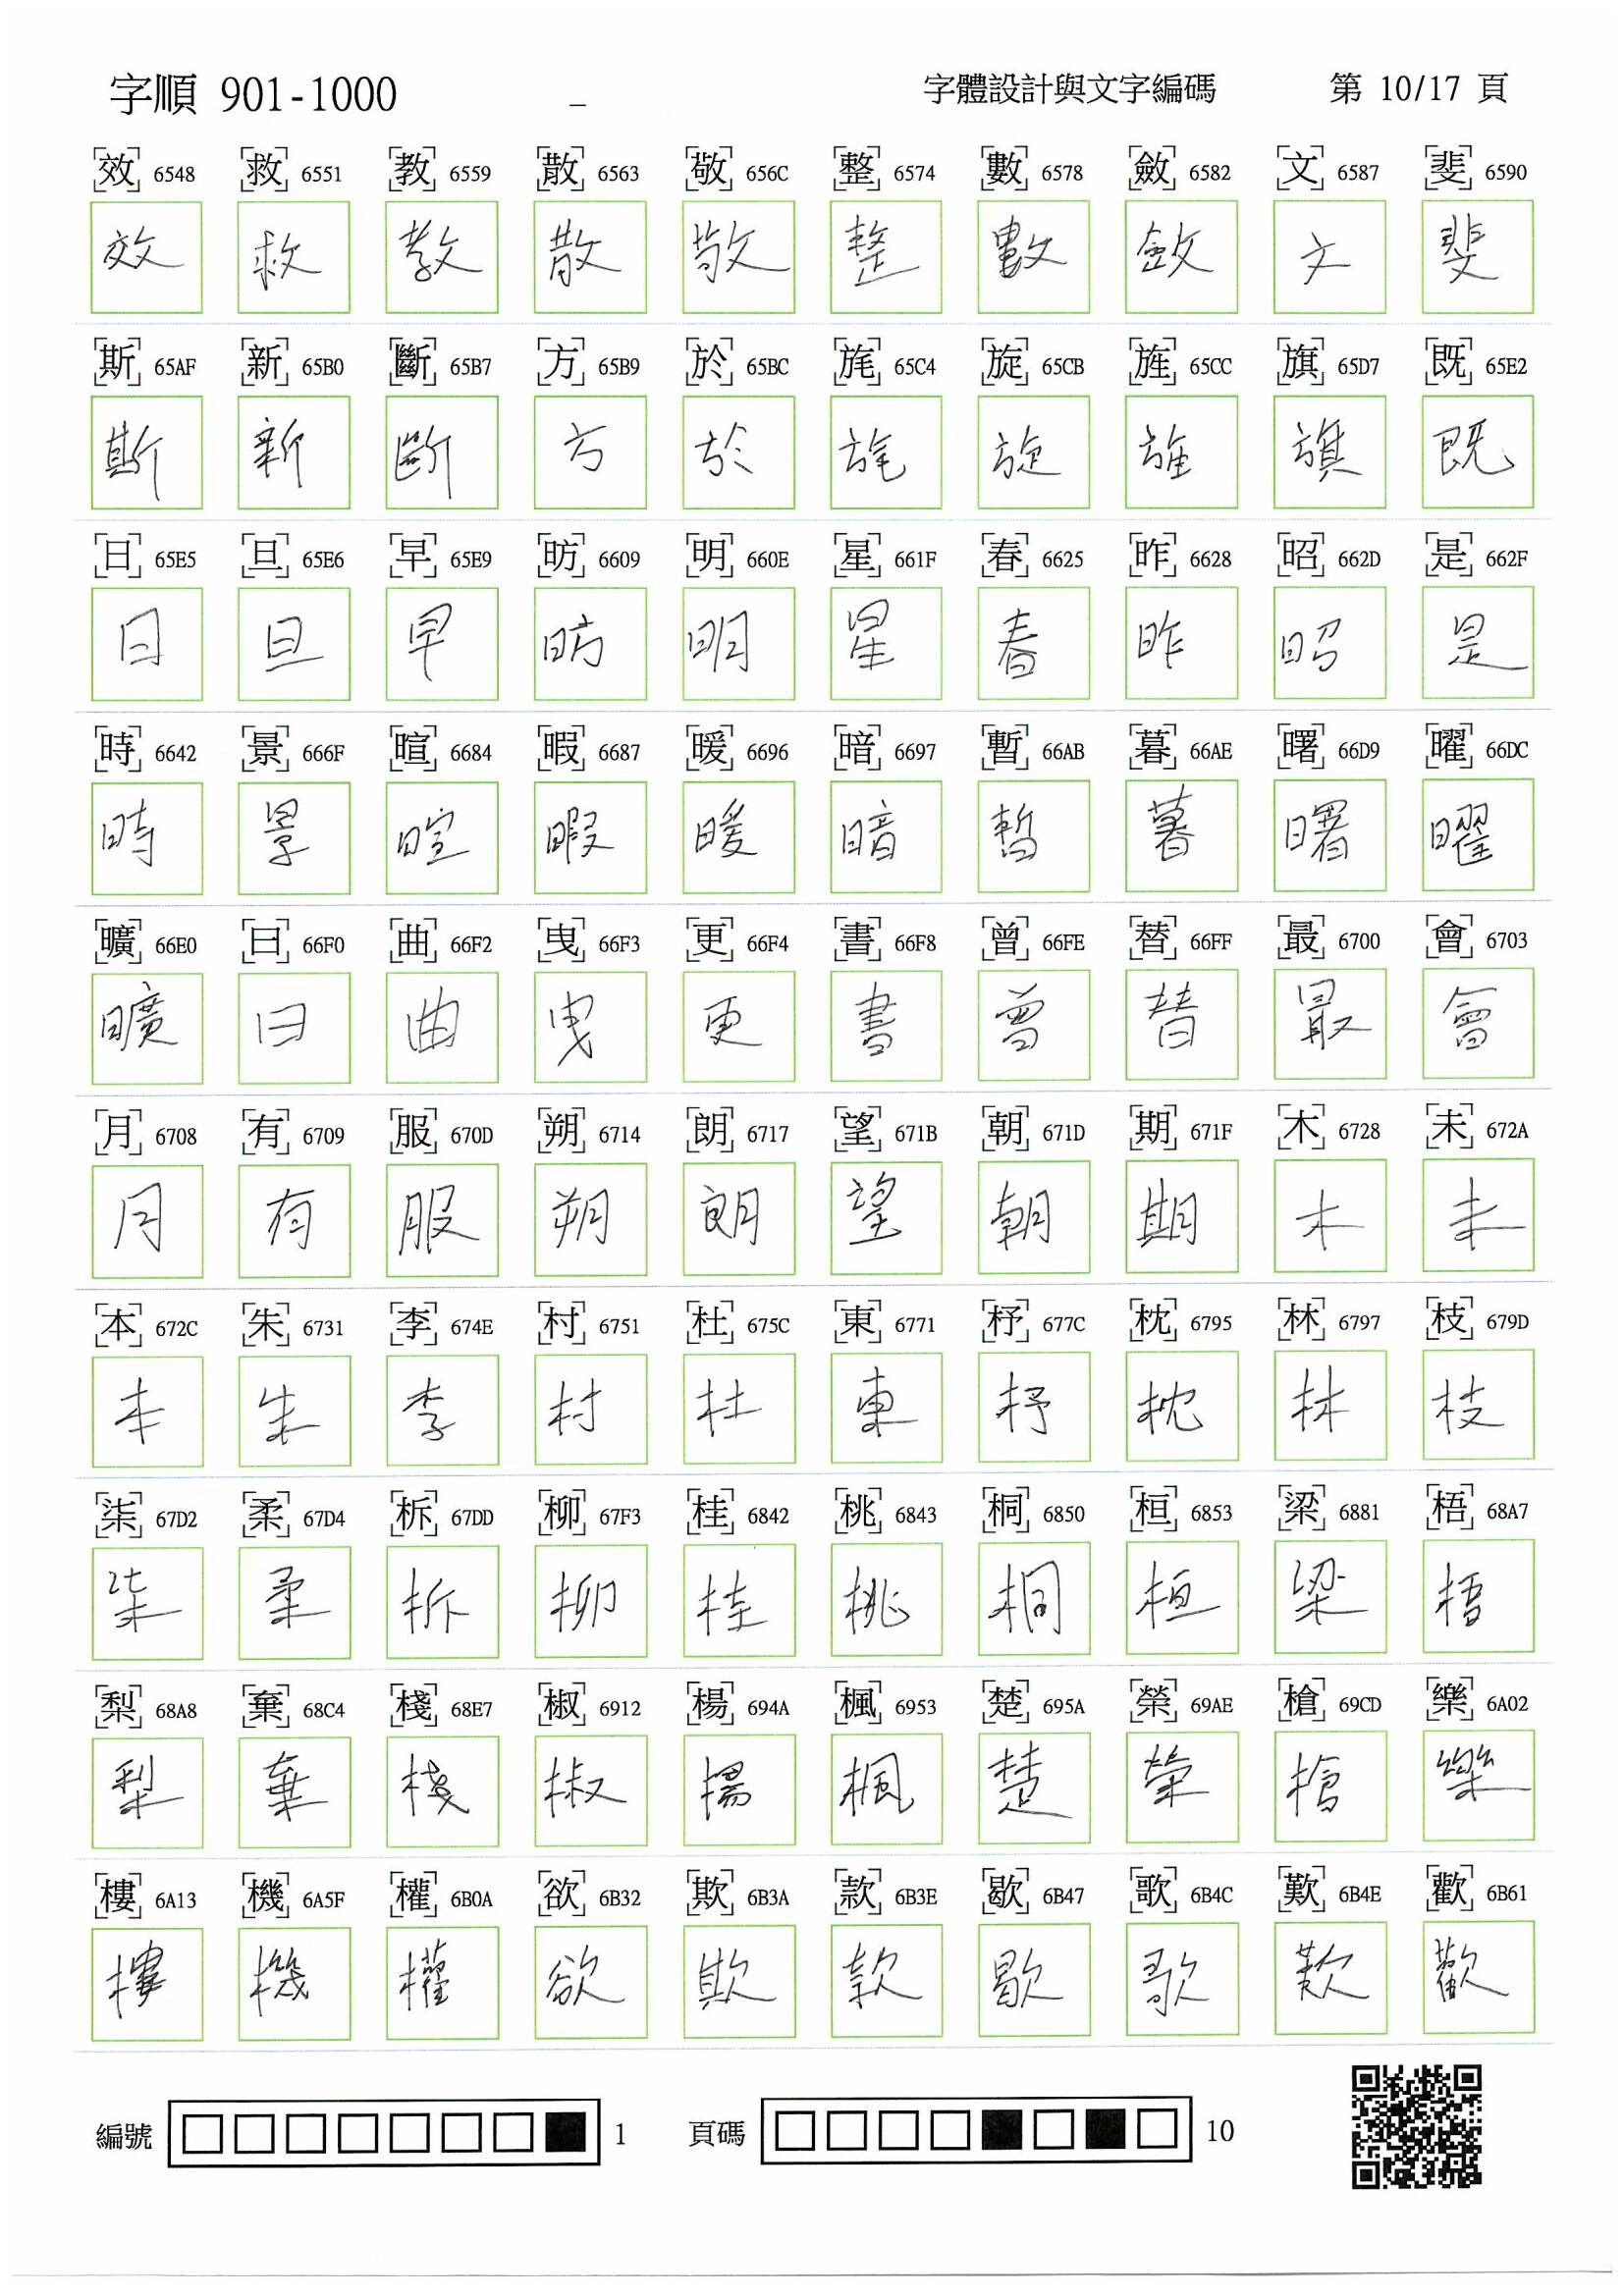 字順 901-1000 _ 字體設計與文字編碼 第 10/17 頁
效 6548 救 6551 教 6559 散 6563 敬 656C 整 6574 數 6578 斂 6582 文 6587 斐 6590
效 救 教 散 敬 整 數 斂 文 斐
斯 65AF 新 65B0 斷 65B7 方 65B9 於 65BC 旄 65C4 旋 65CB 旌 65CC 旗 65D7 既 65E2
斯 新 斷 方 於 旄 旋 旌 旗 既
日 65E5 旦 65E6 早 65E9 昉 6609 明 660E 星 661F 春 6625 昨 6628 昭 662D 是 662F
日 旦 早 昉 明 星 春 昨 昭 是
時 6642 景 666F 暄 6684 暇 6687 暖 6696 暗 6697 暫 66AB 暮 66AE 曙 66D9 曜 66DC
時 景 暄 暇 暖 暗 暫 暮 曙 曜
曠 66E0 曰 66F0 曲 66F2 曳 66F3 更 66F4 書 66F8 曾 66FE 替 66FF 最 6700 會 6703
曠 曰 曲 曳 更 書 曾 替 最 會
月 6708 有 6709 服 670D 朔 6714 朗 6717 望 671B 朝 671D 期 671F 木 6728 未 672A
月 有 服 朔 朗 望 朝 期 木 未
本 672C 朱 6731 李 674E 村 6751 杜 675C 東 6771 杼 677C 枕 6795 林 6797 枝 679D
本 朱 李 村 杜 東 杼 枕 林 枝
柒 67D2 柔 67D4 柝 67DD 柳 67F3 桂 6842 桃 6843 桐 6850 桓 6853 梁 6881 梧 68A7
柒 柔 柝 柳 桂 桃 桐 桓 梁 梧
梨 68A8 棄 68C4 棧 68E7 椒 6912 楊 694A 楓 6953 楚 695A 榮 69AE 槍 69CD 樂 6A02
梨 棄 棧 椒 楊 楓 楚 榮 槍 樂
樓 6A13 機 6A5F 權 6B0A 欲 6B32 欺 6B3A 款 6B3E 歇 6B47 歌 6B4C 歎 6B4E 歡 6B61
樓 機 權 欲 欺 款 歇 歌 歎 歡
編號 1 頁碼 10